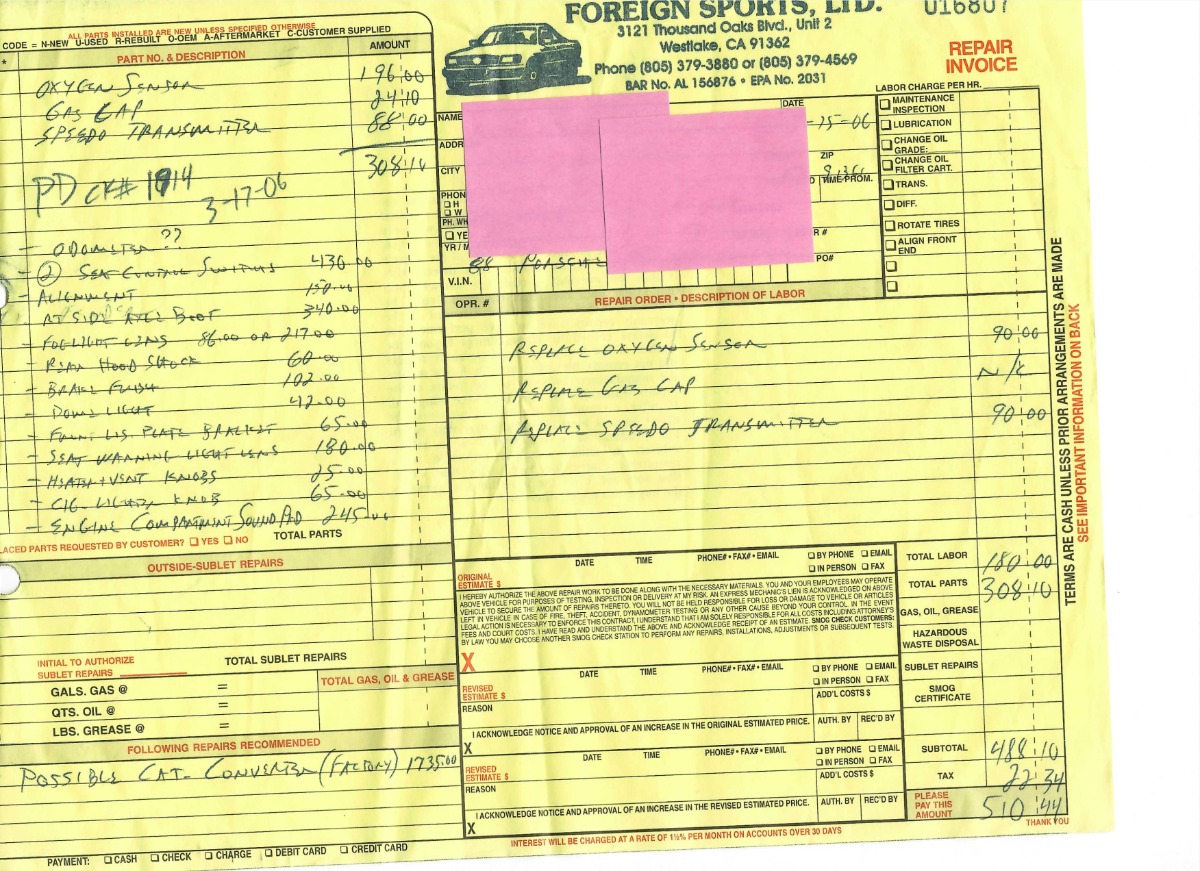 ALL PARTS INSTALLED ARE NEW UNLESS SPECIFIED OTHERWISE
CODE = N-NEW U-USED R-REBUILT O-OEM A-AFTERMARKET C-CUSTOMER SUPPLIED
* PART NO. & DESCRIPTION AMOUNT
OXYGEN SENSOR 196.00
GAS CAP 24.10
SPEEDO TRANSMITTER 88.00
308.10
PD CK# 1914
3-17-06
- ODOMETER ??
- (2) SEAT CONTROL SWITCHES 430.00
- ALIGNMENT 150.00
- RT SIDE AXEL BOOT 340.00
- FOG LIGHT LENS 86.00 OR 217.00
- REAR HOOD SHOCK 60.00
- BRAKE FLUSH 102.00
- DOME LIGHT 42.00
- FRONT LIS. PLATE BRACKET 65.00
- SEAT WARNING LIGHT LENS 180.00
- HEAT + VENT KNOBS 25.00
- CIG. LIGHTER KNOB 65.00
- ENGINE COMPARTMENT SOUND PAD 245.00
LACED PARTS REQUESTED BY CUSTOMER? YES NO TOTAL PARTS
OUTSIDE-SUBLET REPAIRS
INITIAL TO AUTHORIZE
SUBLET REPAIRS
TOTAL SUBLET REPAIRS
TOTAL GAS, OIL & GREASE
GALS. GAS @ =
QTS. OIL @ =
LBS. GREASE @ =
FOLLOWING REPAIRS RECOMMENDED
POSSIBLE CAT. CONVERTER (FACTORY) 1735.00
PAYMENT: CASH CHECK CHARGE DEBIT CARD CREDIT CARD
FOREIGN SPORTS, LTD.
016807
3121 Thousand Oaks Blvd., Unit 2
Westlake, CA 91362
Phone (805) 379-3880 or (805) 379-4569
BAR No. AL 156876 • EPA No. 2031
REPAIR
INVOICE
NAME
DATE
-15-06
ADDR
CITY
ZIP
PHON
H
W
TIME PROM.
PH. WH
YE
R #
YR / M
PO#
88 PORSCHE
V.I.N.
LABOR CHARGE PER HR.
MAINTENANCE
INSPECTION
LUBRICATION
CHANGE OIL
GRADE:
CHANGE OIL
FILTER CART.
TRANS.
DIFF.
ROTATE TIRES
ALIGN FRONT
END
OPR. # REPAIR ORDER • DESCRIPTION OF LABOR
REPLACE OXYGEN SENSOR 90.00
REPLACE GAS CAP N/C
REPLACE SPEEDO TRANSMITTER 90.00
TERMS ARE CASH UNLESS PRIOR ARRANGEMENTS ARE MADE
SEE IMPORTANT INFORMATION ON BACK
ORIGINAL
ESTIMATE $
DATE TIME PHONE# • FAX# • EMAIL BY PHONE EMAIL
IN PERSON FAX
I HEREBY AUTHORIZE THE ABOVE REPAIR WORK TO BE DONE ALONG WITH THE NECESSARY MATERIALS. YOU AND YOUR EMPLOYEES MAY OPERATE
ABOVE VEHICLE FOR PURPOSES OF TESTING, INSPECTION OR DELIVERY AT MY RISK. AN EXPRESS MECHANIC'S LIEN IS ACKNOWLEDGED ON ABOVE
VEHICLE TO SECURE THE AMOUNT OF REPAIRS THERETO. YOU WILL NOT BE HELD RESPONSIBLE FOR LOSS OR DAMAGE TO VEHICLE OR ARTICLES
LEFT IN VEHICLE IN CASE OF FIRE, THEFT, ACCIDENT, DYNAMOMETER TESTING OR ANY OTHER CAUSE BEYOND YOUR CONTROL. IN THE EVENT
LEGAL ACTION IS NECESSARY TO ENFORCE THIS CONTRACT, I UNDERSTAND THAT I AM SOLELY RESPONSIBLE FOR ALL COSTS INCLUDING ATTORNEY'S
FEES AND COURT COSTS. I HAVE READ AND UNDERSTAND THE ABOVE AND ACKNOWLEDGE RECEIPT OF AN ESTIMATE. SMOG CHECK CUSTOMERS:
BY LAW YOU MAY CHOOSE ANOTHER SMOG CHECK STATION TO PERFORM ANY REPAIRS, INSTALLATIONS, ADJUSTMENTS OR SUBSEQUENT TESTS.
X
REVISED
ESTIMATE $
DATE TIME PHONE# • FAX# • EMAIL BY PHONE EMAIL
IN PERSON FAX
REASON
ADD'L COSTS $
I ACKNOWLEDGE NOTICE AND APPROVAL OF AN INCREASE IN THE ORIGINAL ESTIMATED PRICE. AUTH. BY REC'D BY
X
REVISED
ESTIMATE $
DATE TIME PHONE# • FAX# • EMAIL BY PHONE EMAIL
IN PERSON FAX
REASON
ADD'L COSTS $
I ACKNOWLEDGE NOTICE AND APPROVAL OF AN INCREASE IN THE REVISED ESTIMATED PRICE. AUTH. BY REC'D BY
X
INTEREST WILL BE CHARGED AT A RATE OF 1½% PER MONTH ON ACCOUNTS OVER 30 DAYS
TOTAL LABOR 180.00
TOTAL PARTS 308.10
GAS, OIL, GREASE
HAZARDOUS
WASTE DISPOSAL
SUBLET REPAIRS
SMOG
CERTIFICATE
SUBTOTAL 488.10
TAX 22.34
PLEASE
PAY THIS
AMOUNT 510.44
THANK YOU